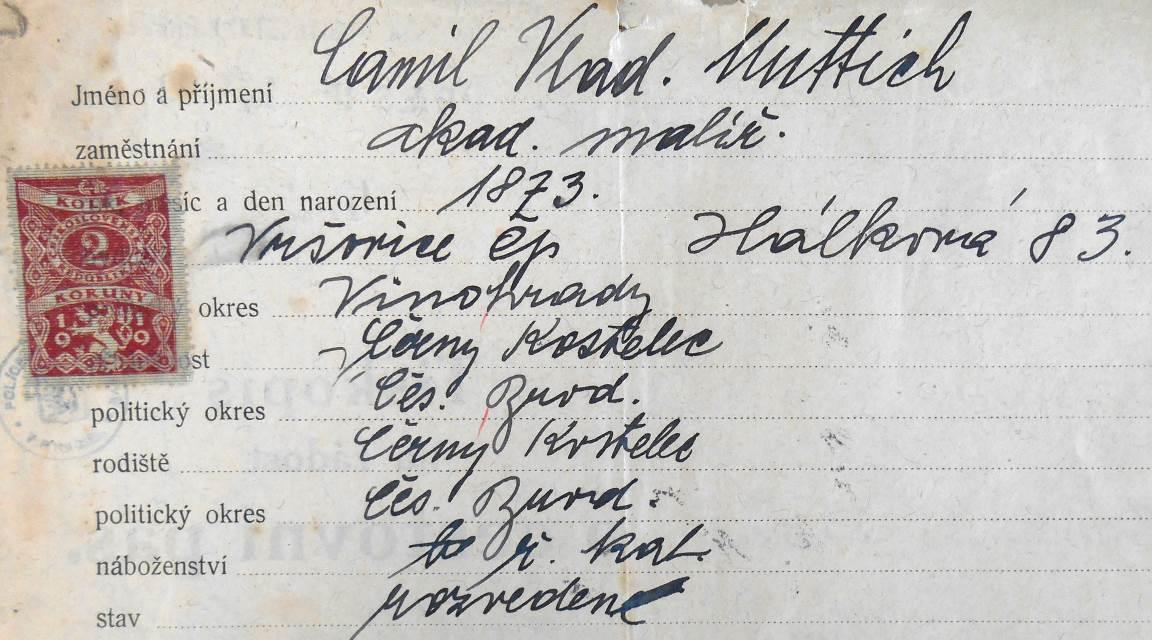 Jméno a příjmení Camil Vlad. Muttich
zaměstnání akad. malíř.
a den narození 1873.
Vršovice čp Hálkova 83.
okres Vinohrady
Černy Kostelec
politický okres Čes. Brod.
rodiště Černy Kostelec
politický okres Čes. Brod.
náboženství ř. kat.
stav rozveden
KOLEK
2
KORUNY
1919